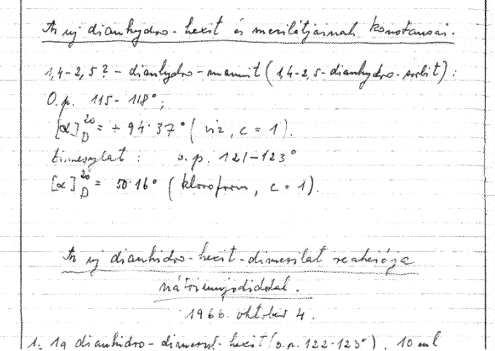 Az új dianhydro-hexit és mesilátjainak konstansai.
1,4-2,5?-dianhydro-mannit (1,4-2,5-dianhydro-sorbit):
O.p. 115-118°;
[α]D20 = + 94·37° (víz, c = 1).
dimesylat: o.p. 121-123°
[α]D20 = 50·16° (kloroform, c = 1).
Az új dianhidro-hexit-dimesilat reakciója
nátriumjodiddal.
1966. október 4.
1. 1g dianhidro-dimesyl-hexit (o.p. 122-123°), 10 ml